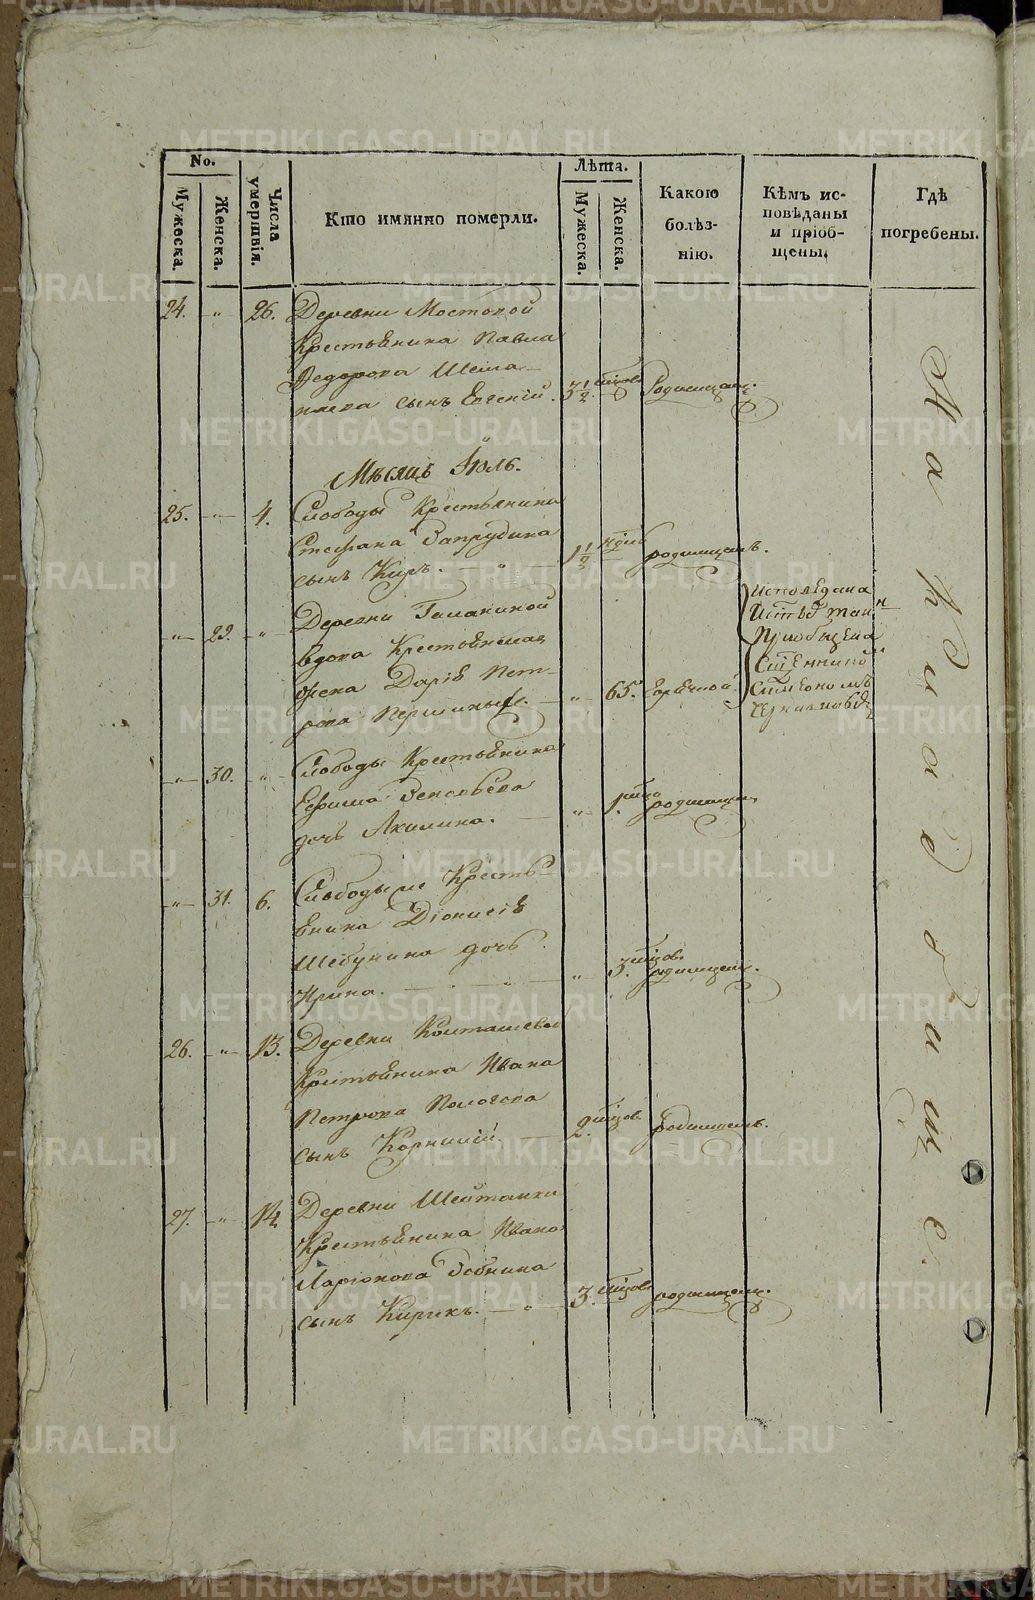 No.
Мужеска.
Женска.
Числа умершвія.
Кто имянно померли.
Лѣта.
Мужеска.
Женска.
Какою
болѣз-
нію.
Кѣмъ ис-
повѣданы
и пріоб-
щены.
Гдѣ
погребены.
24. " 26. Деревни Мостовой
Крестьянина Павла
Федорова Шема-
наева сынъ Евгеній. 3 1/2 мѣсцов Родимицемъ.
Мѣсяцъ Іюль.
25. " 4. Слободы Крестьянина
Стефана Запрудина
сынъ Киръ. " 1 1/2 нѣдѣль родимцемъ.
" 29. " Деревни Галаниной
вдова Крестьянская
жена Дарія Пет-
рова Першиныхъ. " 65. горячкой.
Исповѣдана
и Св. Таинъ
Приобщена
Сщенникомъ
Симеономъ
" 30. " Слободы Крестьянина
Ефима Зиновьева
дочь Акилина. " 1. мѣсца родимцемъ
" 31. 6. Слободы Кресть-
янина Діонисія
Шебунина дочь
Ирина. " 3. мѣсцов. родимцемъ.
26. " 13. Деревни Колташевой
Крестьянина Ивана
Петрова Пологова
сынъ Корнилій. 2. мѣсцов родимцемъ.
27. " 14. Деревни Шайтанки
Крестьянина Ивана
Ларіонова Зобнина
сынъ Кирикъ. " 3. мѣсцов родимцемъ.
На кладбище.
METRIKI.GASO-URAL.RU